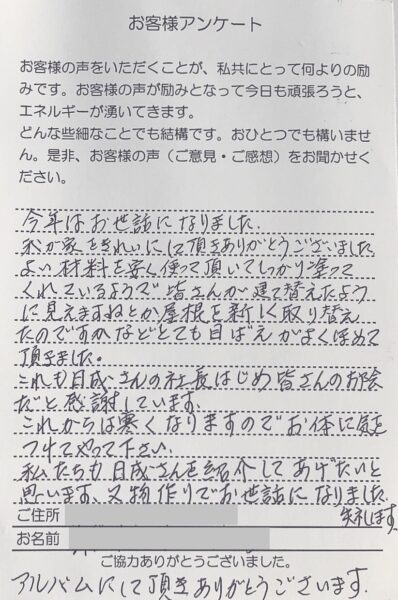 お客様アンケート
お客様の声をいただくことが、私共にとって何よりの励
みです。お客様の声が励みとなって今日も頑張ろうと、
エネルギーが湧いてきます。
どんな些細なことでも結構です。おひとつでも構いませ
ん。是非、お客様の声（ご意見・ご感想）をお聞かせく
ださい。
今年はお世話になりました.
我が家をきれいにして頂きありがとうございました
よい材料を安く使って頂いてしっかり塗って
くれているようで皆さんが建て替えたよう
に見えますねとか屋根を新しく取り替え
たのですかなどとても目ばえがよくほめて
頂きました。
これも日成さんの社長はじめ皆さんのお陰
だと感謝しています.
これからは寒くなりますのでお体に気を
つけてやって下さい.
私たちも日成さんを紹介してあげたいと
思います、又物作りでお世話になりました
失礼します
ご住所
お名前
ご協力ありがとうございました。
アルバムにして頂きありがとうございます.